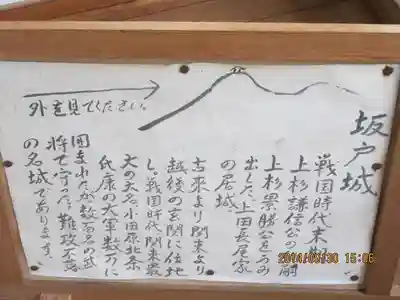 坂戸城
戦国時代末期
上杉謙信公の
上杉景勝公をうみ
出した上田長尾家
の居城。
古来より関東より
越後の玄関に位地
し。戦国時代関東最
大の大名、小田原北条
氏康の大軍数万に
囲まれたが数百名の武
将で守った、難攻不落
の名城であります。
外を見てください。
2014/03/30 15:06